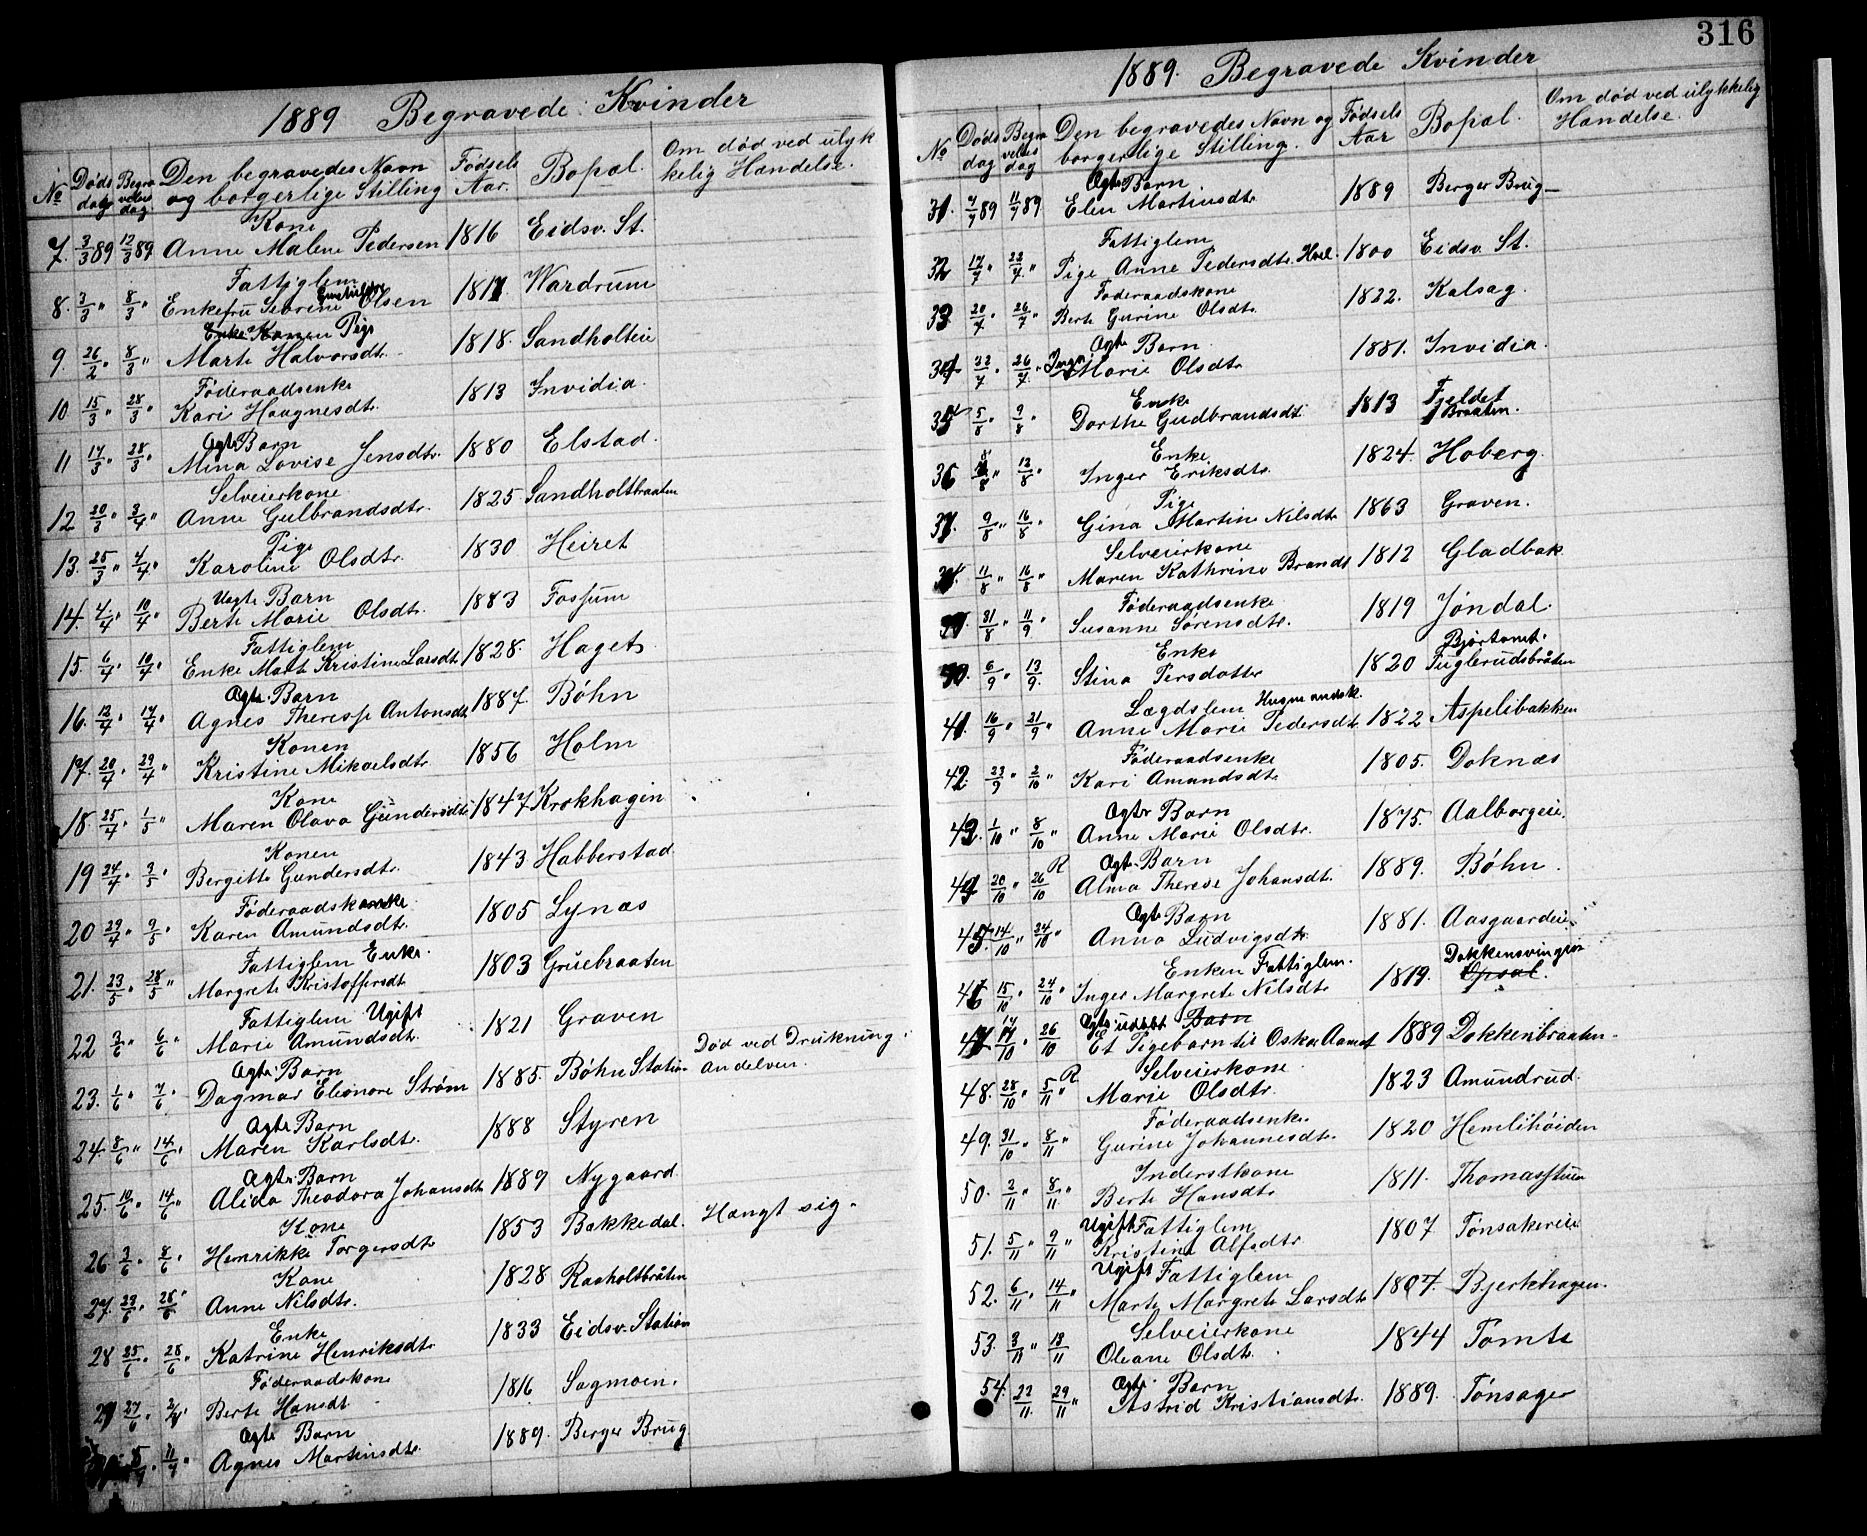 316
1889 Begravede Kvinder
No Døds dag Begra velses dag Den begravedes Navn og borgerlige Stilling Fødsels Aar. Bopæl. Om død ved ulyk kelig Hændelse.
Kone
7. 3/3 89 12/3 89 Anne Malene Pedersen 1816 Eidsv. St.
Fattiglem
8. 3/3 " 8/3 " Enkefru Sebrine Olsen 1811 Wardrum
Pige
9. 26/2 " 8/3 " Marte Halvorsdtr. 1818. Sandholteie
Føderaadsenke
10 15/3 " 28/3 " Kari Haagnesdtr. 1813 Invidia.
Ægte Barn
11 17/3 " 28/3 " Mina Lovise Jensdtr. 1880 Elstad.
Selveierkone
12 20/3 " 3/4 " Anne Gulbrandsdtr. 1825 Sandholtbraaten
Pige
13. 25/3 " 4/4 " Karoline Olsdtr. 1830 Heiret
Uægte Barn
14. 4/4 " 10/4 " Berte Marie Olsdtr. 1883 Fossum
Fattiglem
15. 6/4 " 10/4 " Enke Mart Kristine Larsdtr 1828. Haget
Ægte Barn
16. 12/4 " 17/4 " Agnes Therese Antonsdtr 1887. Bøhn
Konen
17. 20/4 " 29/4 " Kristine Mikaelsdtr 1856 Holm
Kone
18. 25/4 " 1/5 " Maren Olava Gundersdtr 1847 Krokhagin
Konen
19 24/4 " 3/5 " Bergitte Gundersdtr. 1843 Habberstad
Føderaadsk
20 29/4 " 9/5 " Karen Amundsdtr. 1805 Lynæs
Fattiglem Enke.
21. 23/5 " 28/5 " Margrete Kristoffersdt 1803 Gruebraaten
Fattiglem Ugift
22 2/6 " 6/6 " Marie Amundsdt. 1821 Graven
Ægte Barn
23. 1/6 " 7/6 " Dagmar Eleonore Strøm 1885. Bøhn Station Død ved Drukning i Andelven.
Ægte Barn
24. 8/6 " 14/6 " Maren Karlsdtr. 1888 Styren
Ægte Barn
25. 10/6 " 14/6 " Alida Theodora Johansdt 1889 Nygaard
Kone
26. 3/6 " 8/6 " Henrikke Torgersdtr 1853 Bakkedal. Hængt sig.
Kone
27. 23/6 " 28/6 " Anne Nilsdtr. 1828 Raaholtbråten
Enke
28 25/6 " 28/6 " Katrine Henriksdtr 1833 Eidsv. Station
Føderaadskone
29 27/6 " Berte Hansdt 1816 Sagmoen.
Ægte Barn
11/7 " Agnes Martinsdtr. 1889. Berger Brug
1889. Begravede Kvinder
No Døds dag Begra velses dag Den begravedes Navn og borgerlige Stilling. Fødsels Aar Bopæl. Om død ved ulykkelig Hændelse.
Ægte Barn
31. 7/7 89 11/7 89 Elen Martinsdtr 1889 Berger Brug
Fattiglem
32 17/7 " 23/7 " Pige Anne Pedersdtr. Hvel. 1800 Eidsv. St.
Føderaadskone
33 20/7 26/7 " Berte Gurine Olsdtr. 1822. Kalsag.
Ægte Barn
34 22/7 " 26/7 " Inga Marie Olsdtr 1881. Invidia.
Enke
35 5/8 " 9/8 " Dorthe Gudbrandsdt. 1813 Fjeldet Braaten.
Enke
36 13/8 " Inger Eriksdtr. 1824. Hoberg.
Pige
37. 9/8 " 16/8 " Gina Martine Nilsdtr 1863 Graven.
Selveierkone
38 11/8 " 16/8 " Maren Kathrine Brandt 1812 Gladbak
Føderaadsenke
39. 31/8 " 11/9 " Susanne Sørensdtr. 1819 Jøndal.
Enke
40. 6/9 " 13/9. Stina Persdatter 1820 Bjørtomt. Fuglerudsbråten
Lægdslem Husmandsk.
41. 16/9 " 21/9 " Anne Marie Pedersdtr 1822 Aspelibakken
Føderaadsenke
42. 23/9 " 2/10 " Kari Amundsdt. 1805. Doknæs
Ægte Barn
43. 1/10 " 8/10 " Anne Marie Olsdtr. 1875. Aalborgeie.
Ægte Barn
44 20/10 " 26/10 R Alma Therese Johansdt. 1889. Bøhn.
Ægte Barn
45. 14/10 " 24/10 " Anna Ludvigsdtr. 1881. Aasgaardeie
Enken Fattiglem.
46 15/10 " 24/10 " Inger Margrete Nilsdtr 1819. Dokkensvingen Opsal.
Ægte udøbt Barn
47 17/10 26/10 Et Pigebarn til Oskar Aamot 1889 Dokkenbraaten
Selveierkone
48. 28/10 " 5/11 " R Marie Olsdtr. 1823 Amundrud.
Føderaadsenke
49. 31/10 " 8/11 " Gurine Johannesdtr. 1820 Hemlihøiden
Inderstkone
50. 2/11 " 8/11 " Berte Hansdtr 1811. Thomasstuen
Ugift Fattiglem
51. 5/11 " 9/11 " Kristine Alfsdtr 1807 Tønsakereie
Ugift Fattiglem
52. 6/11 " 14/11 " Marte Margrete Larsdtr 1807. Bjerkhagen.
Selveierkone
53. 3/11 " 13/11 Oleane Olsdtr. 1844 Tomte
Ægte Barn
54. 22/11. 29/11 " Astrid Kristiansdtr. 1889. Tønsager